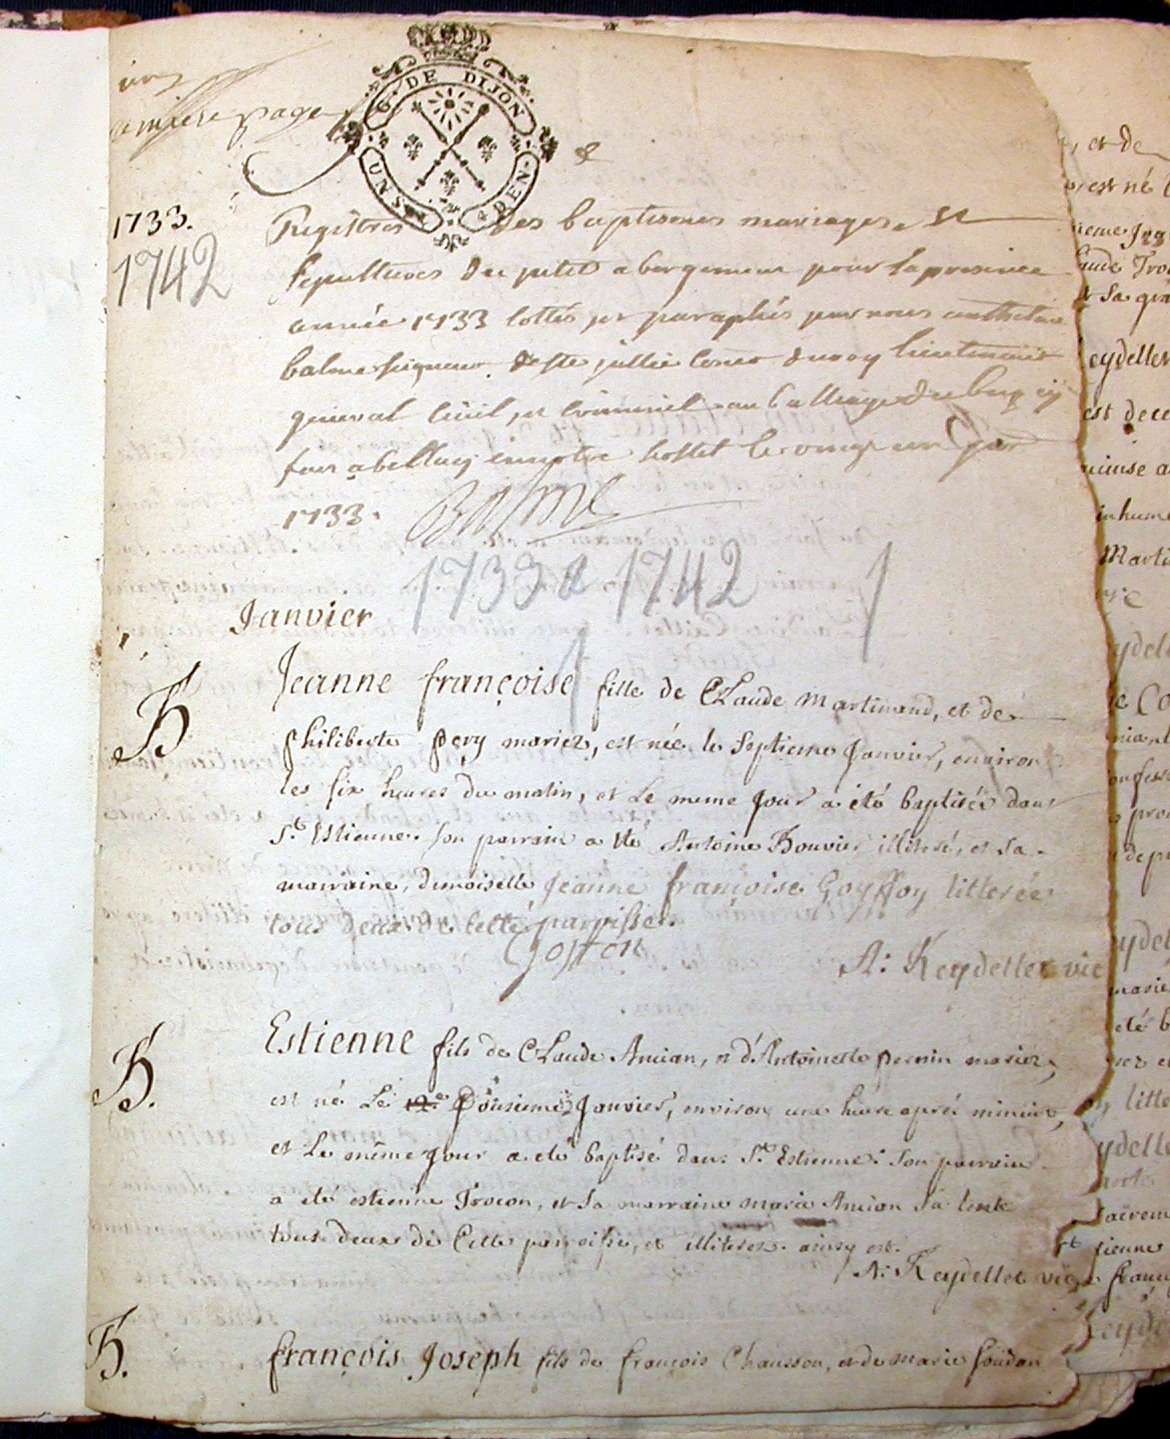 premiere page
G. DE DIJON
UN S. 4 DEN.
1733.
1742
Registres des baptismes mariages et
sepultures du petit abergement pour la presente
année 1733 cottés et paraphés par nous anthelme
balme seigneur de ste jullie conser du roy lieutenant
general civil, et criminel au balliage du bugey
fait a belley en notre hostel le onze
1733. Balme
1733 a 1742 1
Janvier
B
Jeanne françoise fille de Claude Martinand, et de
philiberte pery mariez, est née le septieme Janvier, environ
les six heures du matin, et le meme jour a été baptisée dans
St. Estienne. son parrain a été Antoine Bouvier illiteré, et sa
marraine, demoiselle Jeanne françoise Goyffoy litterée
tous deux de cette parroisse.
A: Reydellet vic
B.
Estienne fils de Claude Amian, et d'Antoinette pernin mariez,
est né le 12e Dousieme Janvier, environ une heure après minuit,
et le même jour a eté baptisé dans St. Estienne: son parrain
a eté estienne Trocon, et sa marraine marie Amian sa tente
tous deux de Cette parroisse, et illiterez. ainsy est.
A: Reydellet vic
B.
françois Joseph fils de françois Chausson, et de marie
et de
est né
Reydellet
est dece
inhumé
Martin